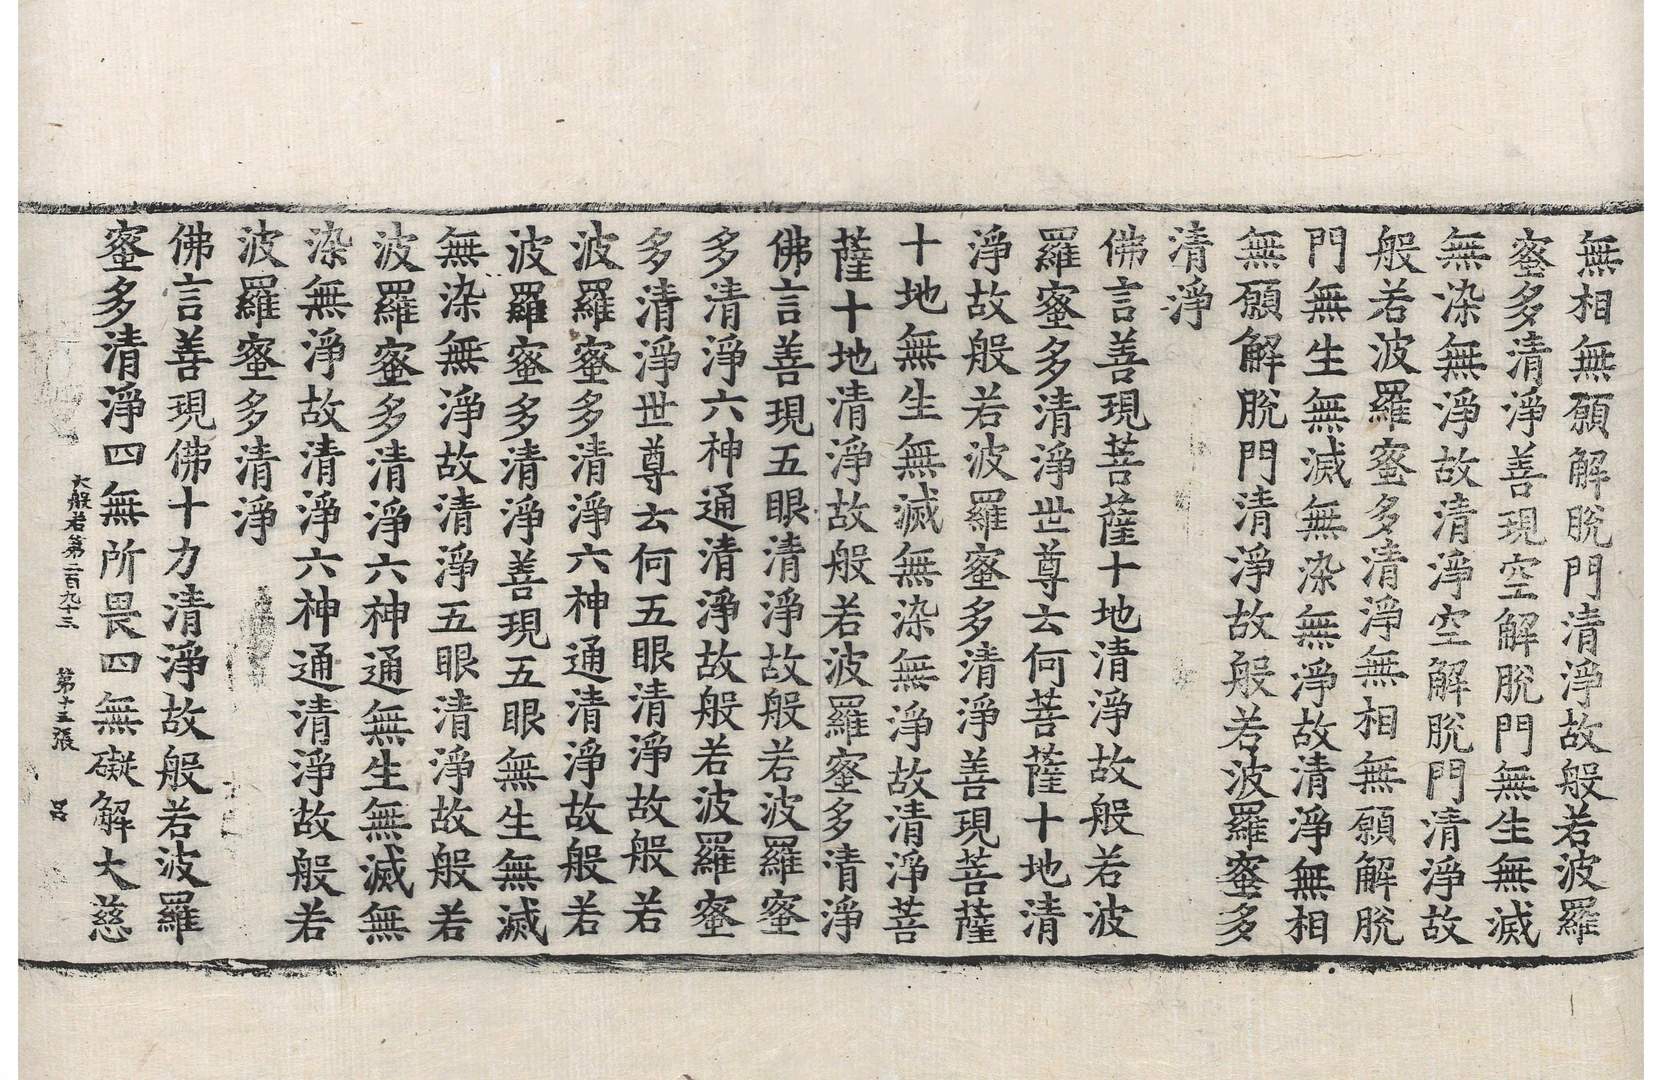 無相無願解脫門清淨故般若波羅
蜜多清淨善現空解脫門無生無滅
無染無淨故清淨空解脫門清淨故
般若波羅蜜多清淨無相無願解脫
門無生無滅無染無淨故清淨無相
無願解脫門清淨故般若波羅蜜多
清淨
佛言善現菩薩十地清淨故般若波
羅蜜多清淨世尊云何菩薩十地清
淨故般若波羅蜜多清淨善現菩薩
十地無生無滅無染無淨故清淨菩
薩十地清淨故般若波羅蜜多清淨
佛言善現五眼清淨故般若波羅蜜
多清淨六神通清淨故般若波羅蜜
多清淨世尊云何五眼清淨故般若
波羅蜜多清淨六神通清淨故般若
波羅蜜多清淨善現五眼無生無滅
無染無淨故清淨五眼清淨故般若
波羅蜜多清淨六神通無生無滅無
染無淨故清淨六神通清淨故般若
波羅蜜多清淨
佛言善現佛十力清淨故般若波羅
蜜多清淨四無所畏四無礙解大慈
大般若第二百九十三 第十五張 呂